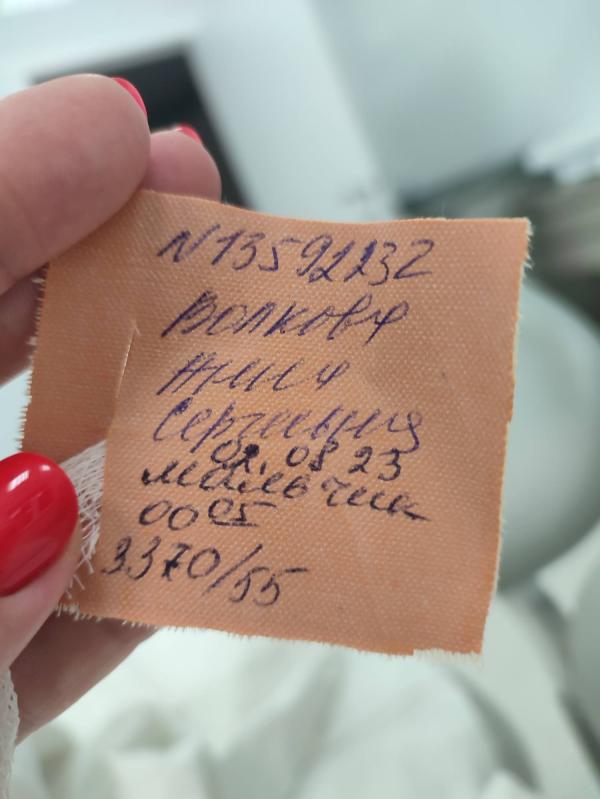 N13592232
Волкова
Анна
Сергеевна
02.08 23
мальчик
00 05
3370/55